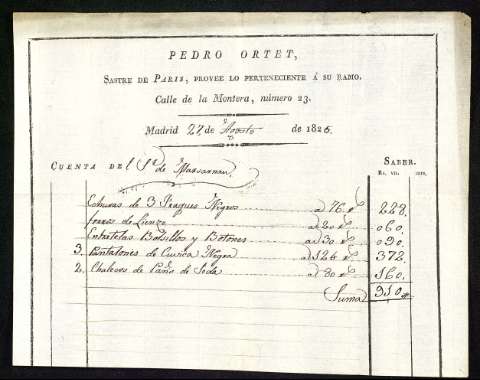 PEDRO ORTET,
SASTRE DE PARIS, PROVEE LO PERTENECIENTE Á SU RAMO.
Calle de la Montera, número 23.
Madrid 27 de Agosto de 1826.
CUENTA DEL Sr. de
SABER.
Rs. vn. mrs.
de 3 Fraques Negros a 76 rs. 228.
forros de Lienzo a 20 rs. 060.
Entretelas Bolsillos y Botones a 30 rs. 090.
3. Pantalones de Negra a 124 rs. 372.
2. Chalecos de Paño de Seda a 80 rs. 160.
Suma 910